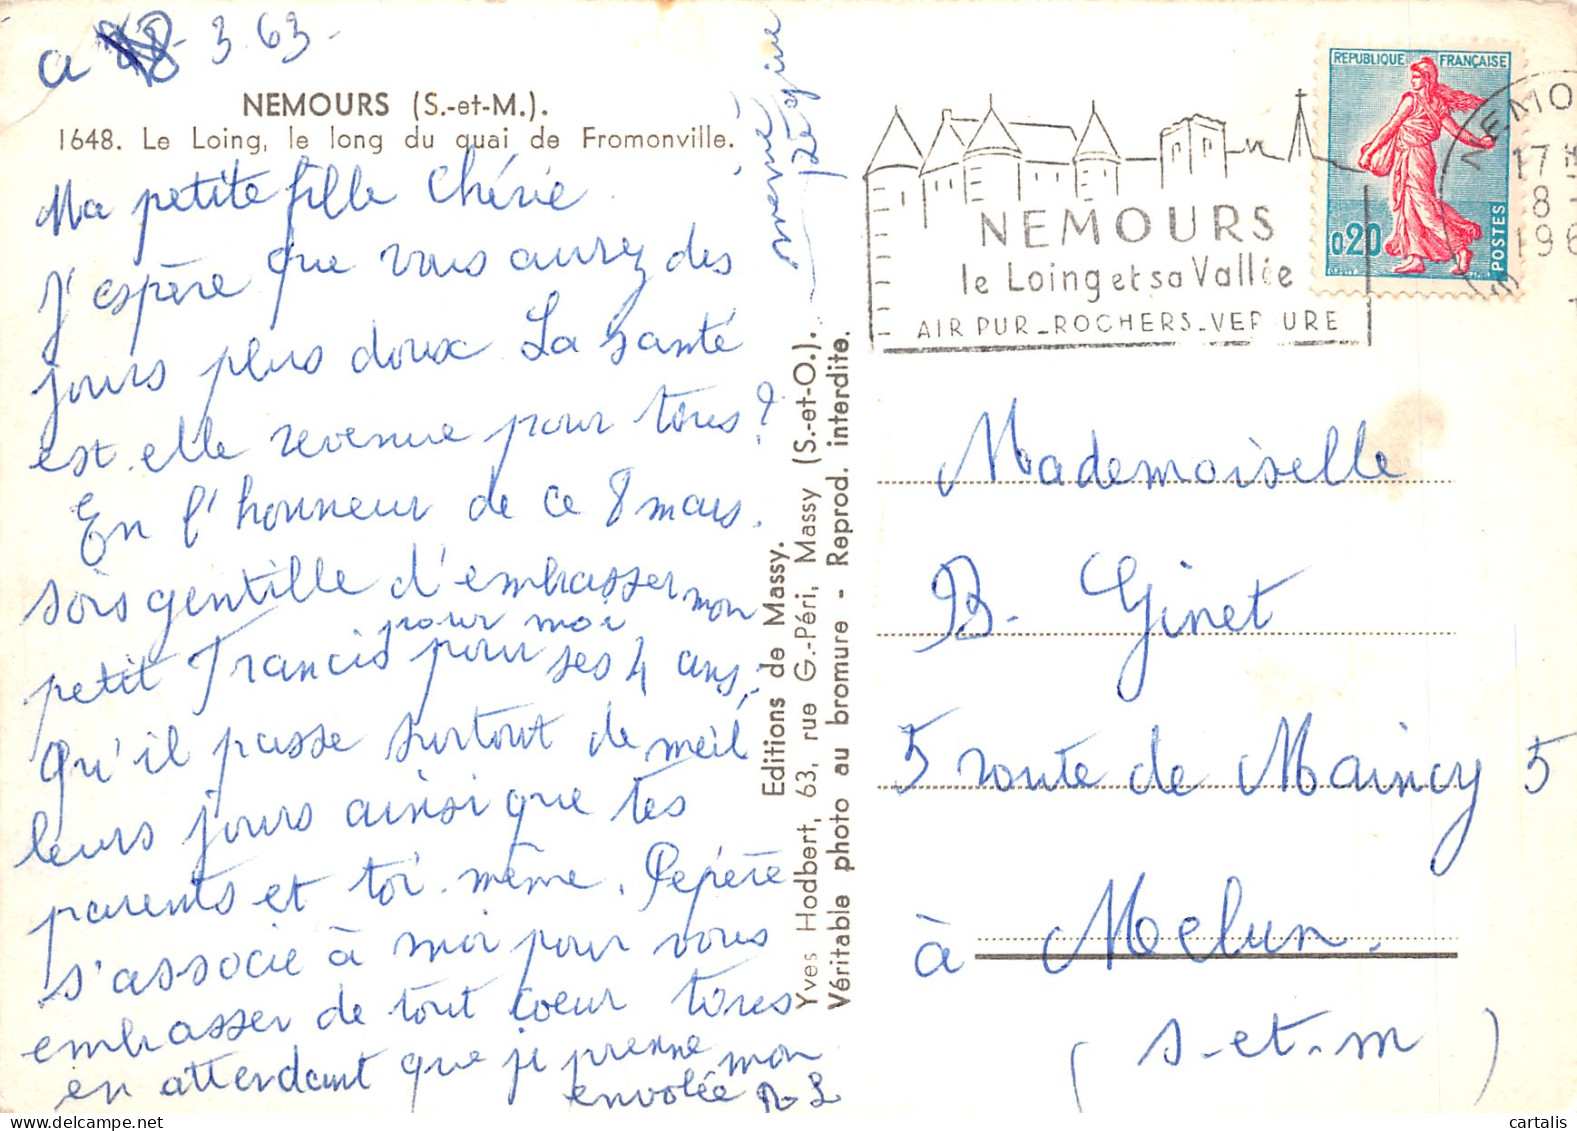 a 8-3.63-
NEMOURS (S.-et-M.).
1648. Le Loing, le long du quai de Fromonville.
Ma petite fille Chérie.
J'espère que vous aurez des
jours plus doux. La santé
est. elle revenue pour tous?
En l'honneur de ce 8 mars.
sois gentille d'embrasser mon
pour moi
petit Francis pour ses 4 ans.
Qu'il passe surtout de meil
leurs jours ainsi que tes
parents et toi. même. Pépère
s'associe à moi pour vous
embrasser de tout coeur tous
en attendant que je prenne mon
envolée
mémé
Régine
Editions de Massy.
Yves Hodbert, 63, rue G.-Péri, Massy (S.-et-O.).
Véritable photo au bromure - Reprod. interdite.
NEMOURS
le Loing et sa Vallée
AIR PUR_ROCHERS_VERDURE
REPUBLIQUE FRANÇAISE
0,20
POSTES
NEMO
17 H
8 -
196
Mademoiselle
B. Ginet
5 route de Maincy 5
à Melun.
(S-et-m)
cartalis